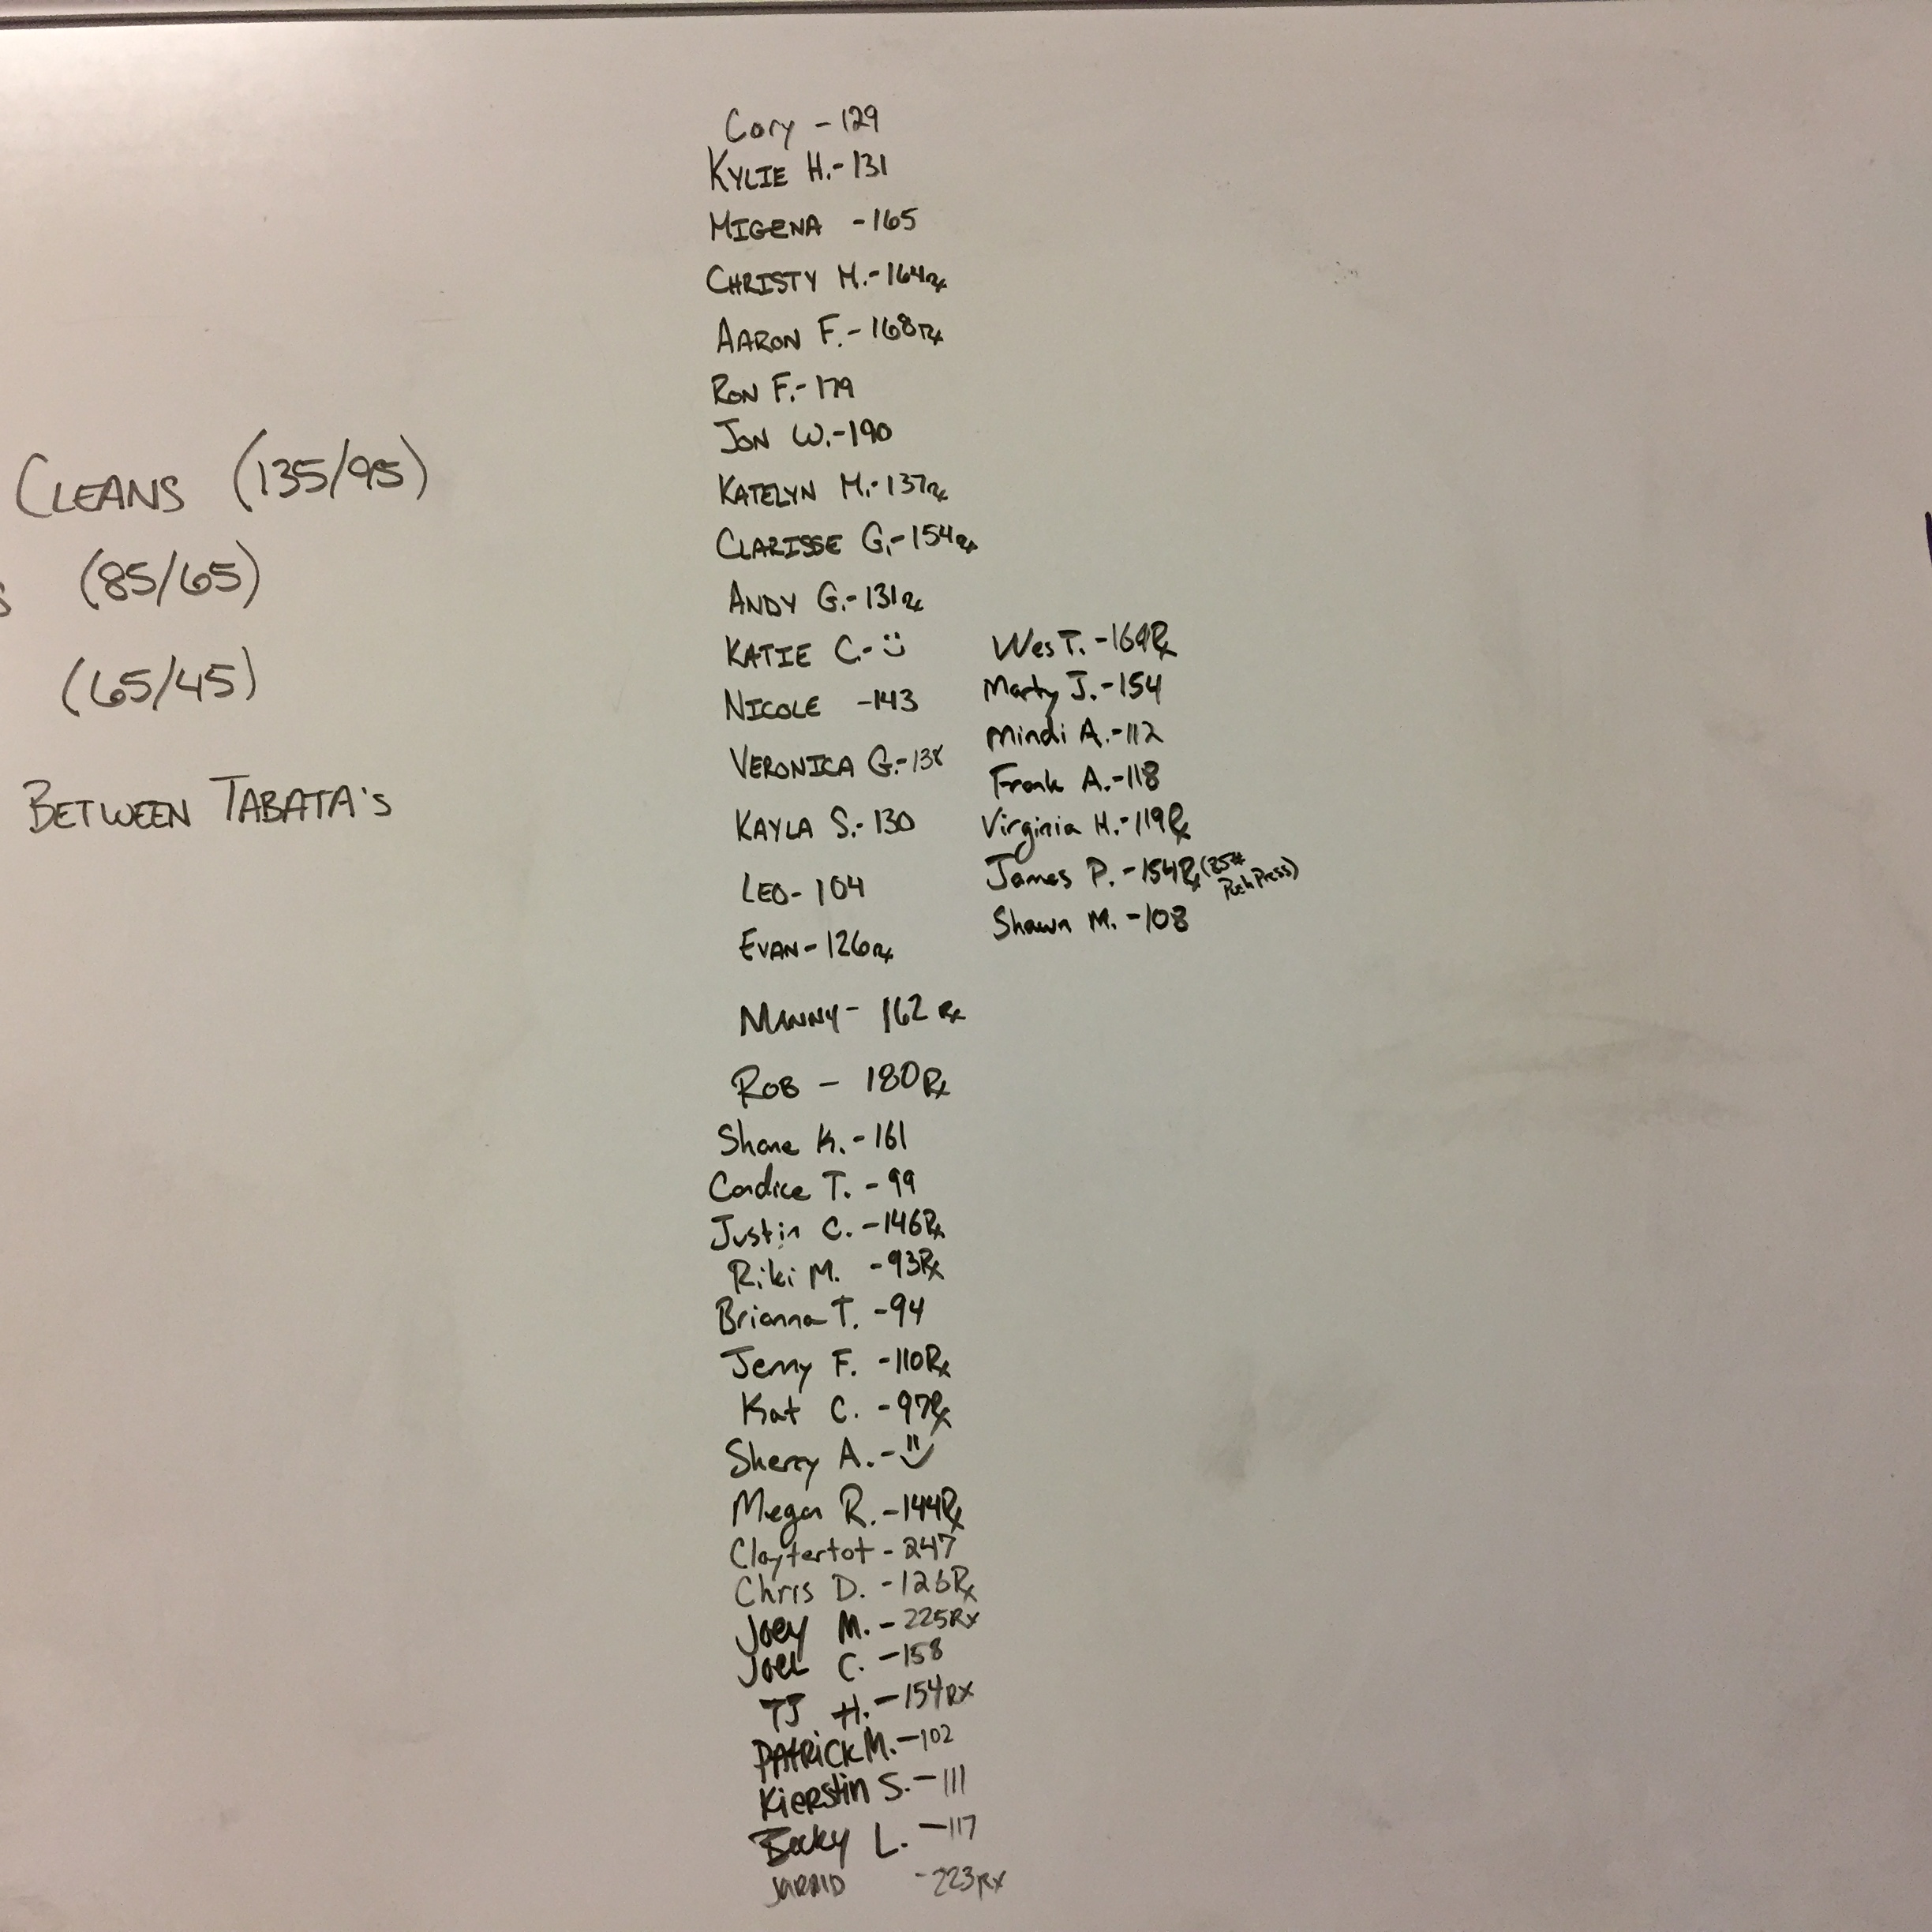 CLEANS (135/95)
(85/65)
(65/45)
BETWEEN TABATA'S
Cory - 129
KYLIE H.- 131
MIGENA - 165
CHRISTY M.- 164Rx
AARON F.- 168Rx
RON F.- 179
JON W.- 190
KATELYN M.- 137Rx
CLARISSE G.- 154Rx
ANDY G.- 131Rx
KATIE C.- ü
NICOLE - 143
VERONICA G.- 138
KAYLA S.- 130
LEO- 104
EVAN- 126Rx
MANNY- 162 Rx
ROB - 180Rx
Shane K. - 161
Candice T. - 99
Justin C. - 146Rx
Riki M. - 93Rx
Brianna T. - 94
Jenny F. - 110Rx
Kat C. - 97Rx
Sherry A. - ü
Megan R. - 144Rx
Claytertot - 247
Chris D. - 126Rx
Joey M. - 225Rx
Joel C. - 158
TJ H. - 154RX
PATRICK M. - 102
Kierstin S. - 111
Becky L. - 117
JARAID - 223RX
Wes T. - 169Rx
Marty J. - 154
Mindi A. - 112
Frank A. - 118
Virginia H. - 119Rx
James P. - 154Rx (85# Push Press)
Shawn M. - 108